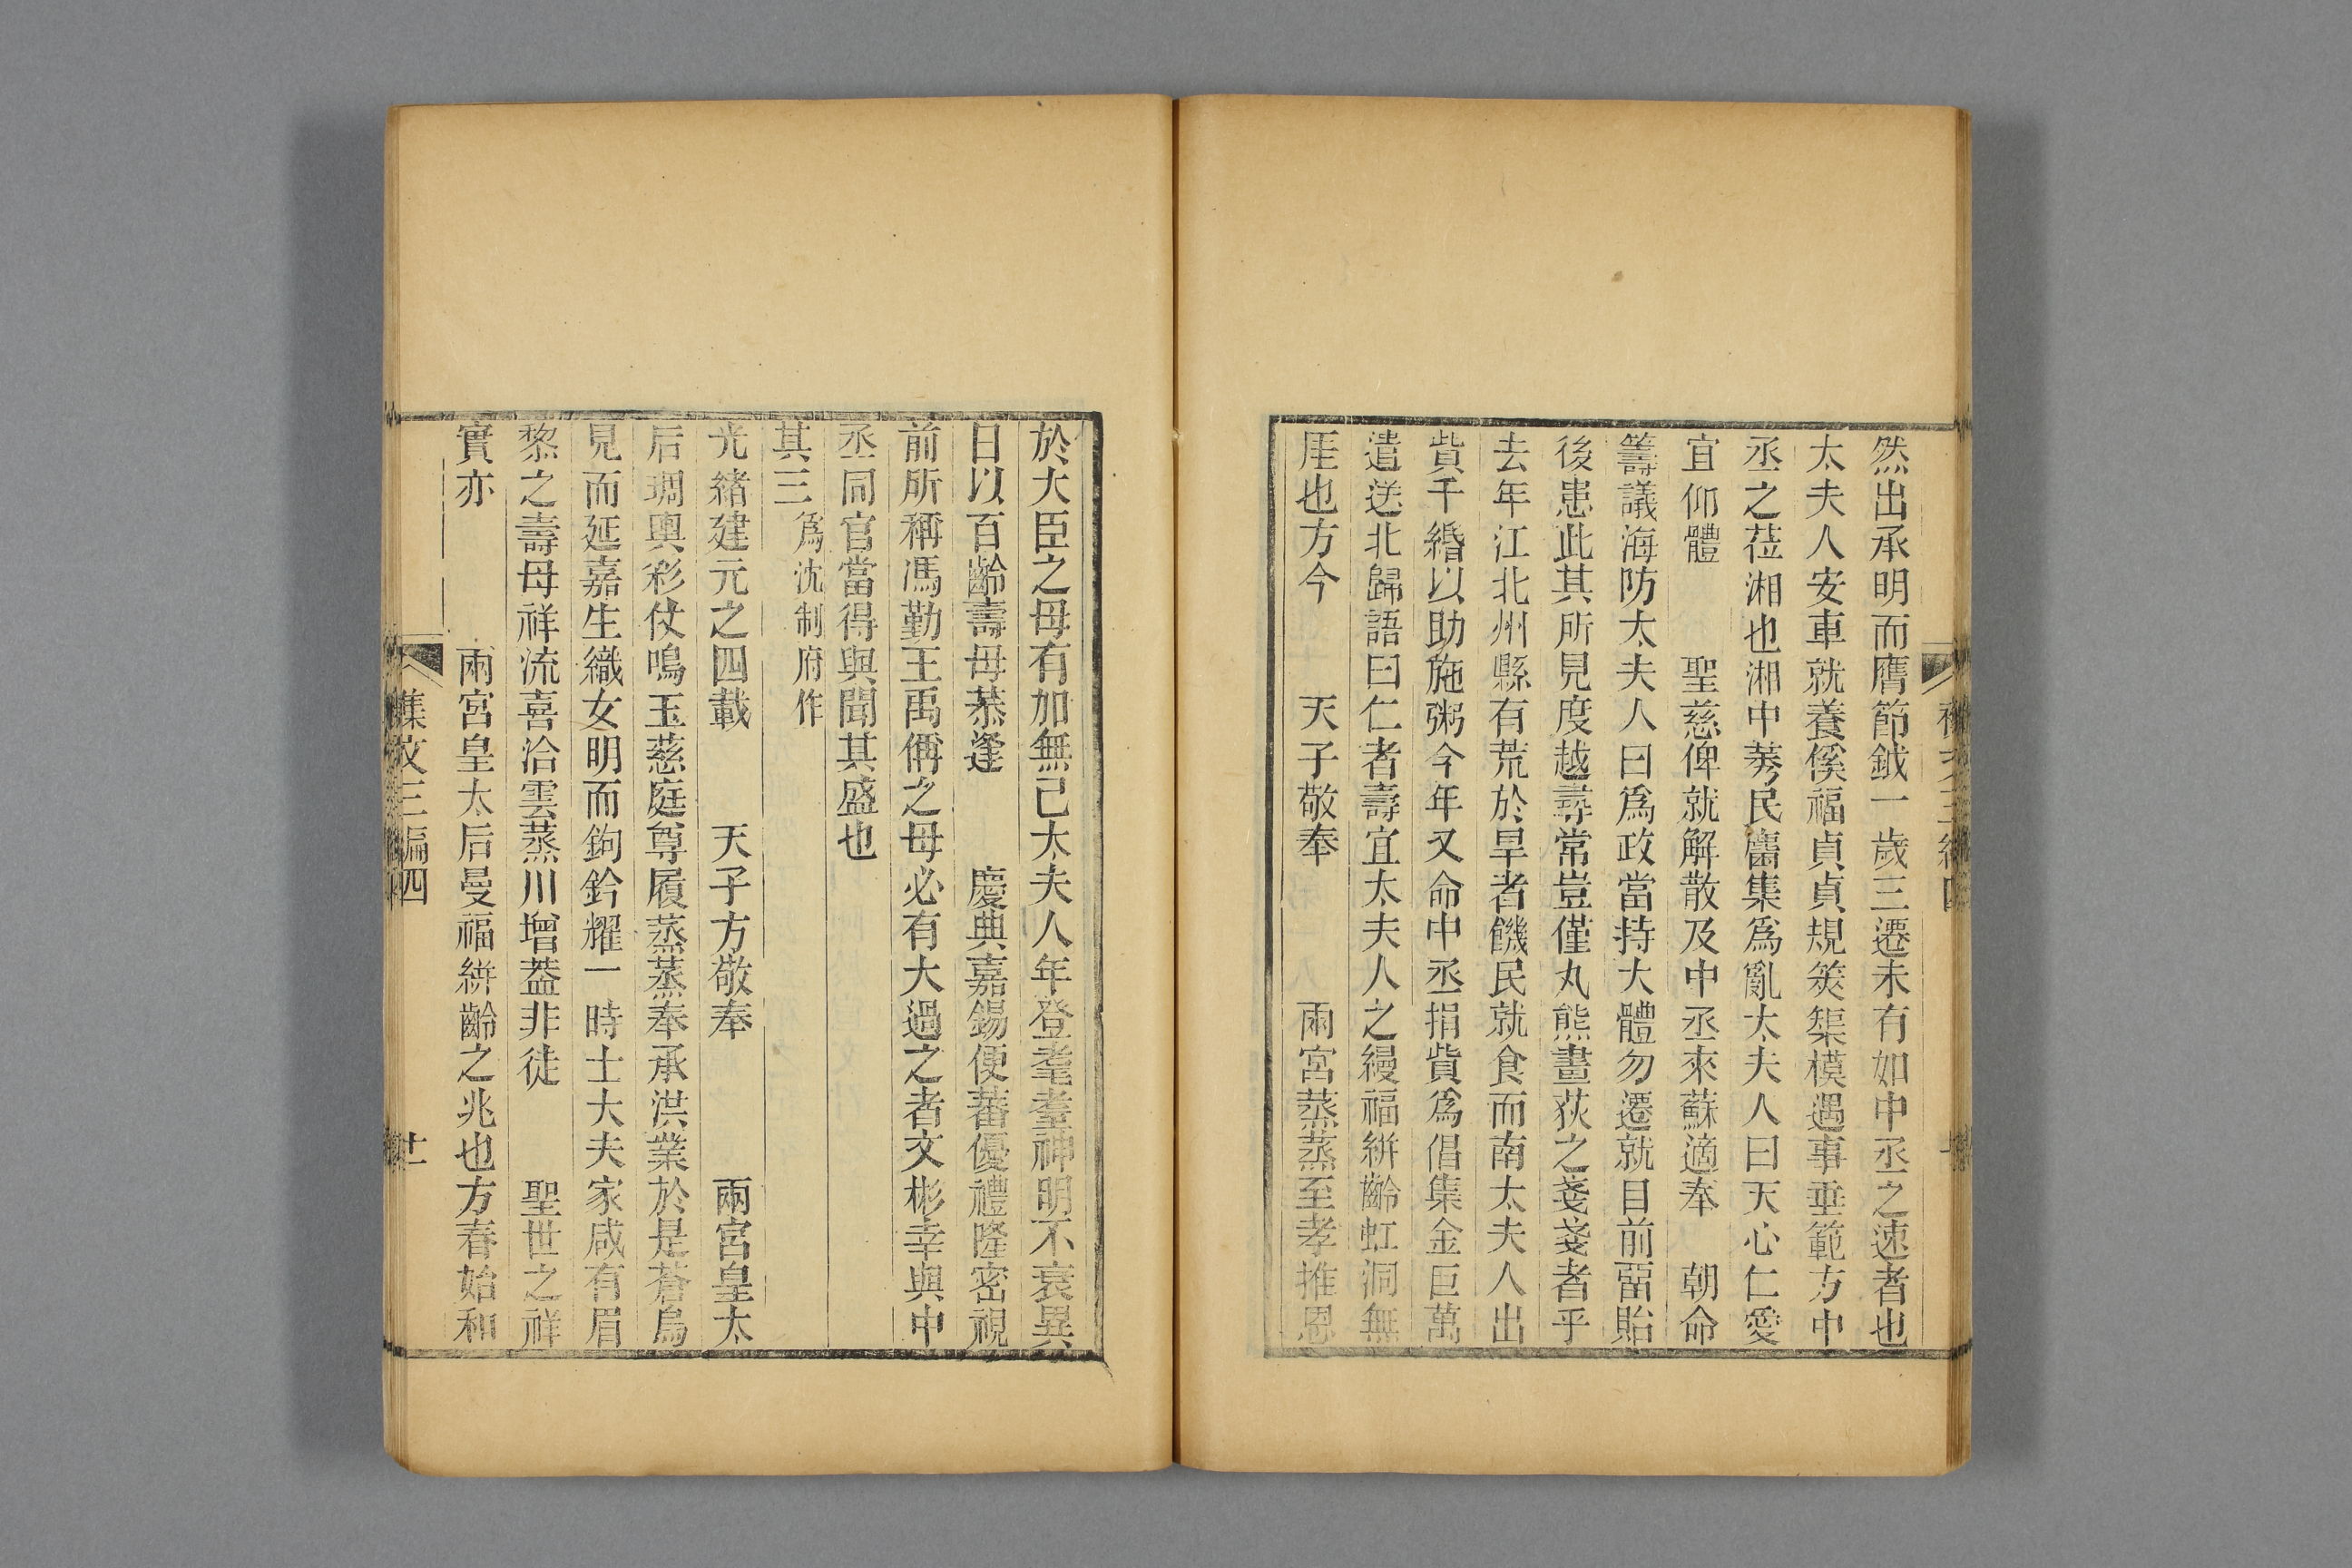 然出承明而膺節鉞一歲三遷未有如中丞之速者也
太夫人安車就養徯福貞貞規榘模遇事垂範方中
丞之莅湘也湘中莠民麕集爲亂太夫人曰天心仁愛
宜仰體 聖慈俾就解散及中丞來蘇適奉 朝命
籌議海防太夫人曰爲政當持大體勿遷就目前畱貽
後患此其所見度越尋常豈僅丸熊畫荻之戔戔者乎
去年江北州縣有荒於旱者饑民就食而南太夫人出
貲千緡以助施粥今年又命中丞捐貲爲倡集金巨萬
遣送北歸語曰仁者壽宜太夫人之縵福絣齡虹洞無
厓也方今 天子敬奉 兩宮蒸蒸至孝推恩
於大臣之母有加無已太夫人年登耄耋神明不衰異
日以百齡壽母恭逢 慶典嘉錫便蕃優禮隆密視
前所稱馮勤王禹偁之母必有大過之者文彬幸與中
丞同官當得與聞其盛也
其三 爲沈制府作
光緒建元之四載 天子方敬奉 兩宮皇太
后琱輿彩仗鳴玉慈庭尊履蒸蒸奉承洪業於是蒼烏
見而延嘉生織女明而鉤鈐耀一時士大夫家咸有眉
黎之壽母祥流喜洽雲蒸川增葢非徒 聖世之祥
實亦 兩宮皇太后曼福絣齡之兆也方春始和
襍文三編四 廿一